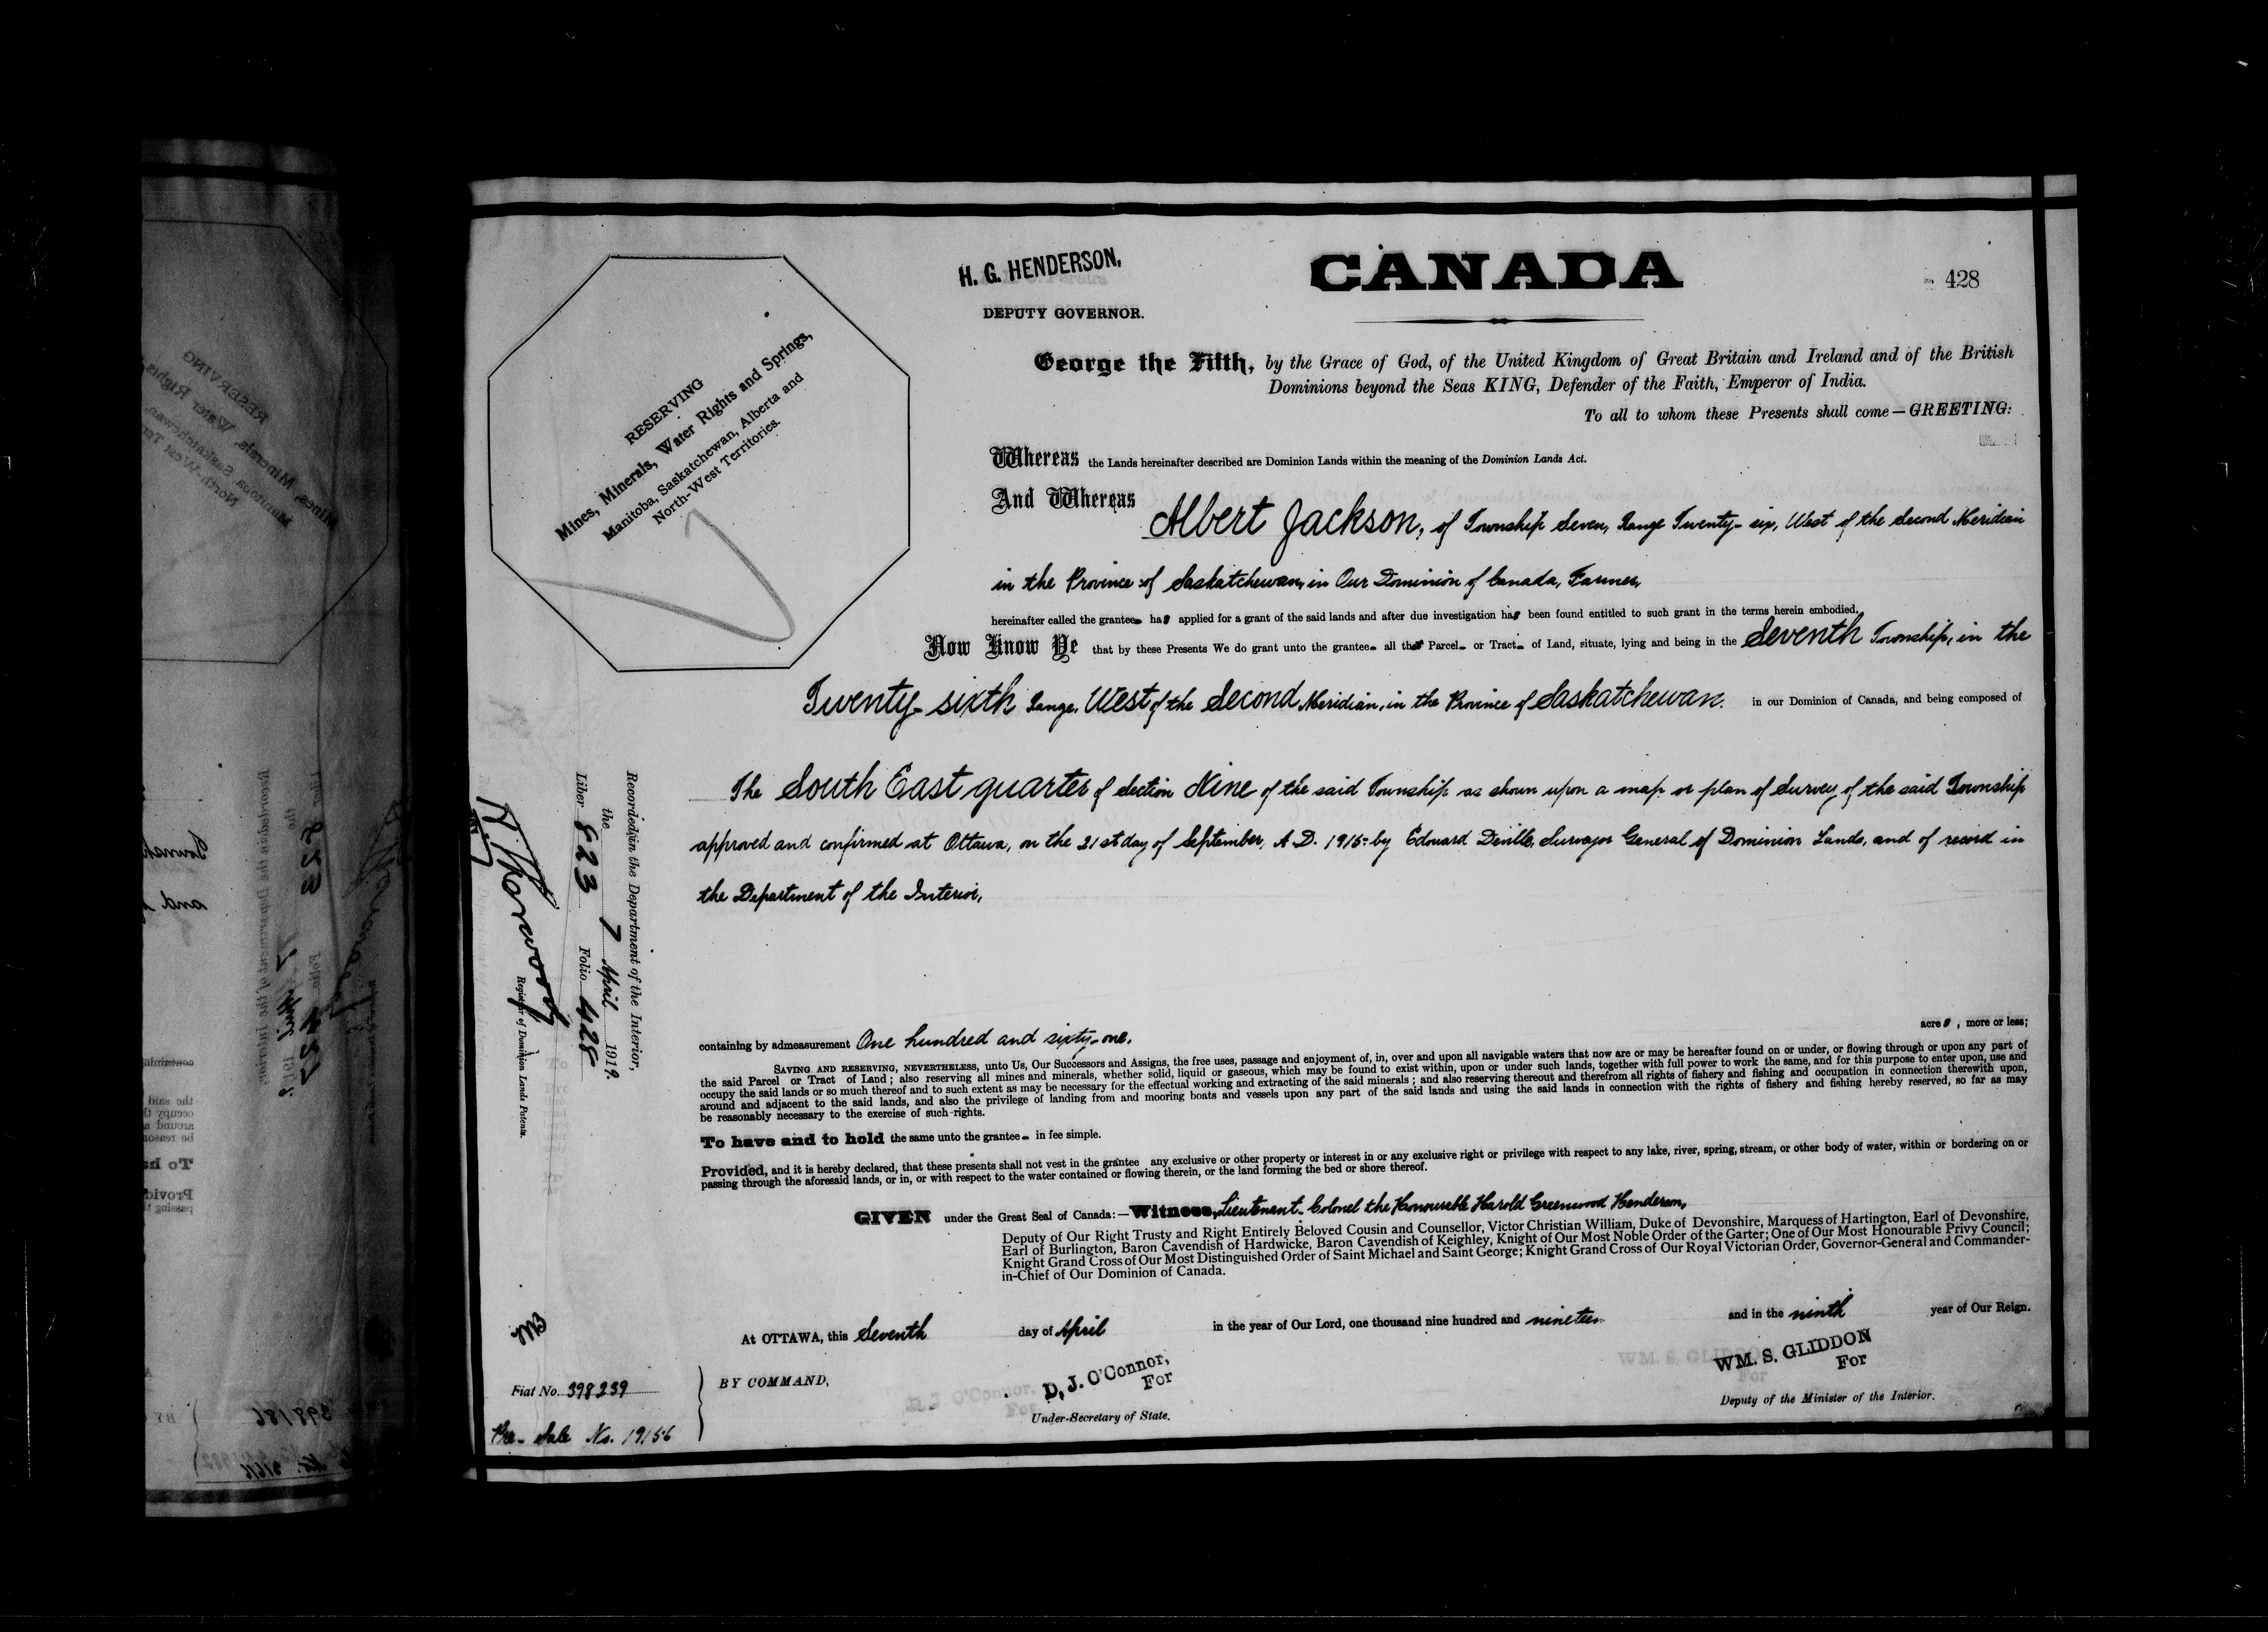 H. G. HENDERSON,
DEPUTY GOVERNOR.
CANADA
428
RESERVING
Mines, Minerals, Water Rights and Springs,
Manitoba, Saskatchewan, Alberta and
North-West Territories.
George the Fifth, by the Grace of God, of the United Kingdom of Great Britain and Ireland and of the British
Dominions beyond the Seas KING, Defender of the Faith, Emperor of India.
To all to whom these Presents shall come—GREETING:
Whereas the Lands hereinafter described are Dominion Lands within the meaning of the Dominion Lands Act.
And Whereas Albert Jackson, of Township Seven, Range Twenty-six, West of the Second Meridian
in the Province of Saskatchewan, in Our Dominion of Canada, Farmer,
hereinafter called the grantee has applied for a grant of the said lands and after due investigation has been found entitled to such grant in the terms herein embodied.
Now Know Ye that by these Presents We do grant unto the grantee all that Parcel or Tract of Land, situate, lying and being in the Seventh Township, in the
Twenty-sixth Range, West of the Second Meridian, in the Province of Saskatchewan. in our Dominion of Canada, and being composed of
The South East quarter of Section Nine of the said Township as shown upon a map or plan of Survey of the said Township
approved and confirmed at Ottawa, on the 21st day of September, A.D. 1915 by Edouard Deville, Surveyor General of Dominion Lands, and of record in
the Department of the Interior,
containing by admeasurement One hundred and sixty-one. acres, more or less;
SAVING AND RESERVING, NEVERTHELESS, unto Us, Our Successors and Assigns, the free uses, passage and enjoyment of, in, over and upon all navigable waters that now are or may be hereafter found on or under, or flowing through or upon any part of
the said Parcel or Tract of Land; also reserving all mines and minerals, whether solid, liquid or gaseous, which may be found to exist within, upon or under such lands, together with full power to work the same, and for this purpose to enter upon, use and
occupy the said lands or so much thereof and to such extent as may be necessary for the effectual working and extracting of the said minerals; and also reserving thereout and therefrom all rights of fishery and fishing and occupation in connection therewith upon,
around and adjacent to the said lands, and also the privilege of landing from and mooring boats and vessels upon any part of the said lands and using the said lands in connection with the rights of fishery and fishing hereby reserved, so far as may
be reasonably necessary to the exercise of such rights.
To have and to hold the same unto the grantee in fee simple.
Provided, and it is hereby declared, that these presents shall not vest in the grantee any exclusive or other property or interest in or any exclusive right or privilege with respect to any lake, river, spring, stream, or other body of water, within or bordering on or
passing through the aforesaid lands, or in, or with respect to the water contained or flowing therein, or the land forming the bed or shore thereof.
GIVEN under the Great Seal of Canada:—Witness, Lieutenant-Colonel the Honourable Harold Greenwood Henderson,
Deputy of Our Right Trusty and Right Entirely Beloved Cousin and Counsellor, Victor Christian William, Duke of Devonshire, Marquess of Hartington, Earl of Devonshire,
Earl of Burlington, Baron Cavendish of Hardwicke, Baron Cavendish of Keighley, Knight of Our Most Noble Order of the Garter; One of Our Most Honourable Privy Council;
Knight Grand Cross of Our Most Distinguished Order of Saint Michael and Saint George; Knight Grand Cross of Our Royal Victorian Order, Governor-General and Commander-
in-Chief of Our Dominion of Canada.
At OTTAWA, this Seventh day of April in the year of Our Lord, one thousand nine hundred and nineteen and in the ninth year of Our Reign.
BY COMMAND,
D. J. O'Connor,
For
Under-Secretary of State.
WM. S. GLIDDON
For
Deputy of the Minister of the Interior.
Recorded in the Department of the Interior,
the 7 April 1919.
Liber 623 Folio 428
Registrar of Dominion Lands Patents.
Fiat No. 398239
Pre-Sale No. 19156